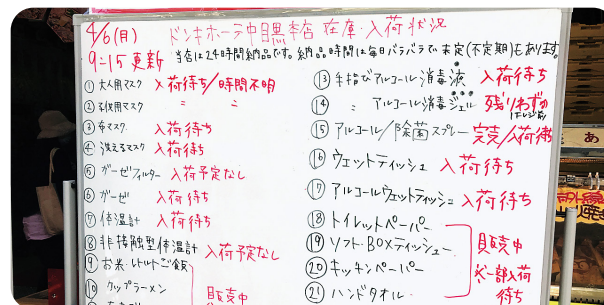 4/6(月) ドンキホーテ中目黒本店 在庫・入荷状況
9:15更新 当店は24時間納品です。納品時間は毎日バラバラで未定(不定期)もあります。
①大人用マスク 入荷待ち/時間不明
②子供用マスク 〃 〃
③布マスク 入荷待ち
④洗えるマスク 入荷待ち
⑤ガーゼフィルター 入荷予定なし
⑥ガーゼ 入荷待ち
⑦体温計 入荷待ち
⑧非接触型体温計 入荷予定なし
⑨お米・レトルトご飯
⑩カップラーメン 販売中
⑬手指びアルコール消毒液 入荷待ち
⑭ 〃 アルコール消毒ジェル 残りわずか
⑮アルコール/除菌スプレー 完売/入荷待ち
⑯ウェットティッシュ 入荷待ち
⑰アルコールウェットティッシュ 入荷待ち
⑱トイレットペーパー
⑲ソフト・BOXティッシュー 販売中
⑳キッチンペーパー 一部入荷
㉑ハンドタオル 待ち